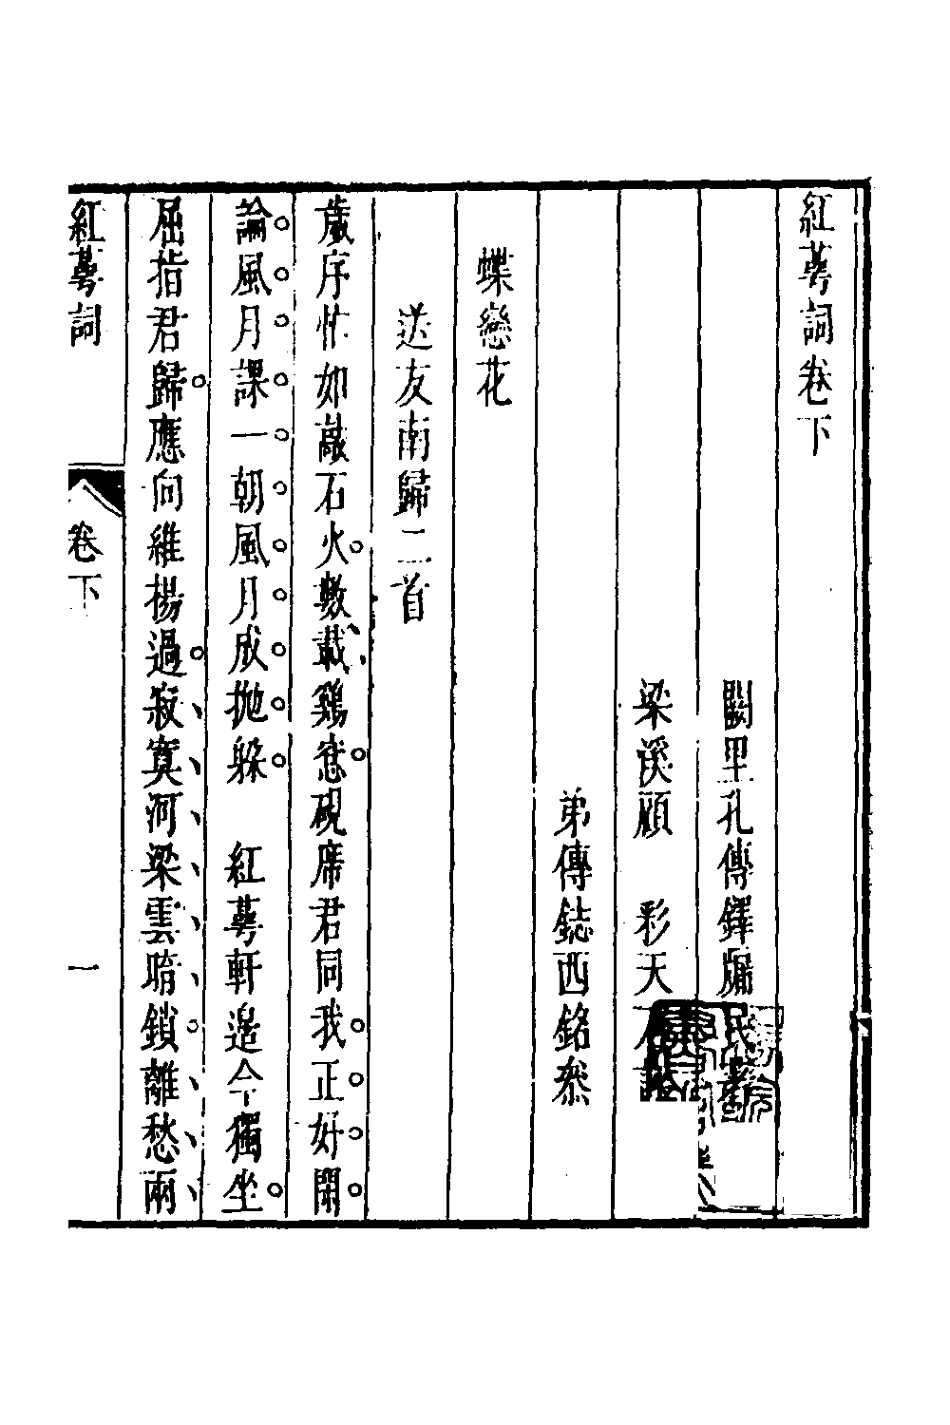 紅萼詞卷下
闕里孔傳鐸牖民著
梁溪顧　彩天石
弟傳鋕西銘叅
蝶戀花
送友南歸二首
歲序忙如敲石火數載鷄窓硯席君同我正好閒
論風月課一朝風月成抛躲　紅萼軒邊今獨坐
屈指君歸應向維揚過寂寞河梁雲暗鎖離愁兩
紅萼詞
卷下
一